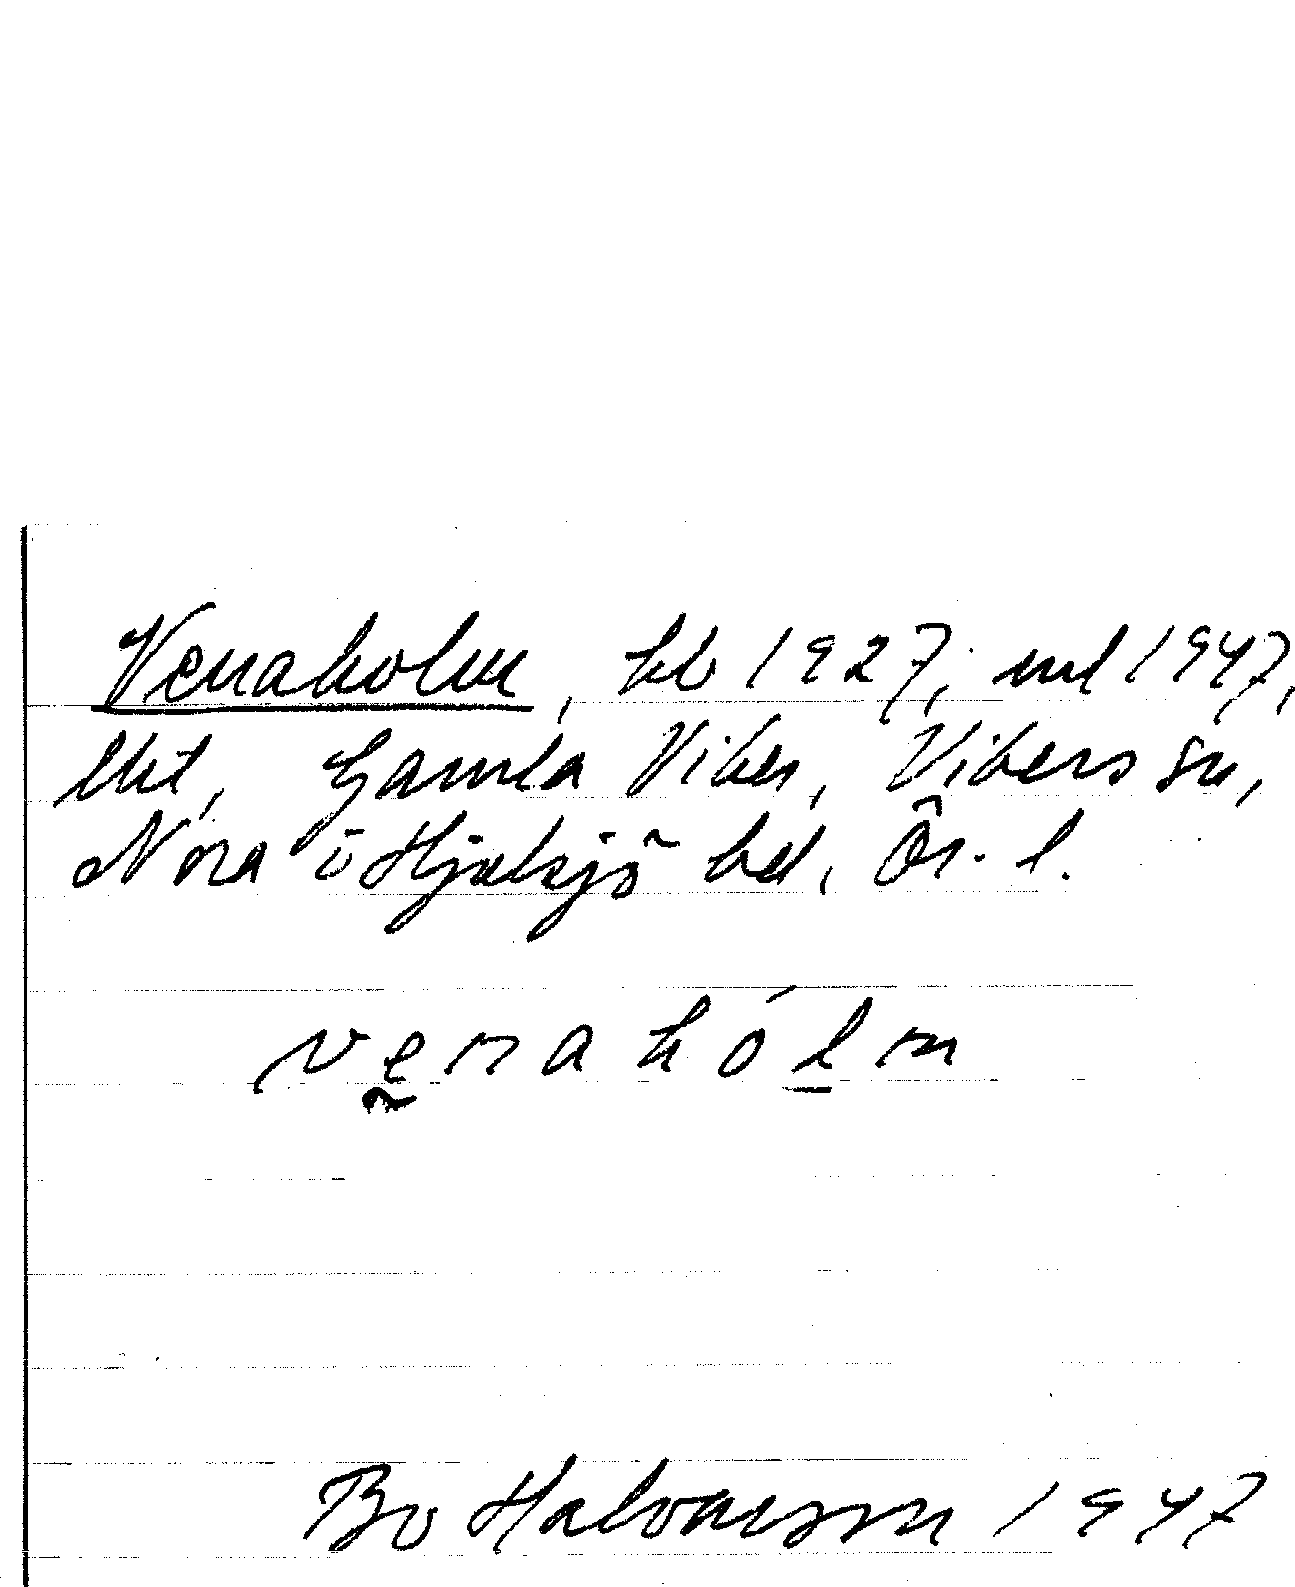 Venaholm, kb 1927; uml 1947,
lht, Gamla Viker, Vikers sn,
Nora o Hjulsjö bd, Ör. l.
venahólm
Bo Halvarsson 1947